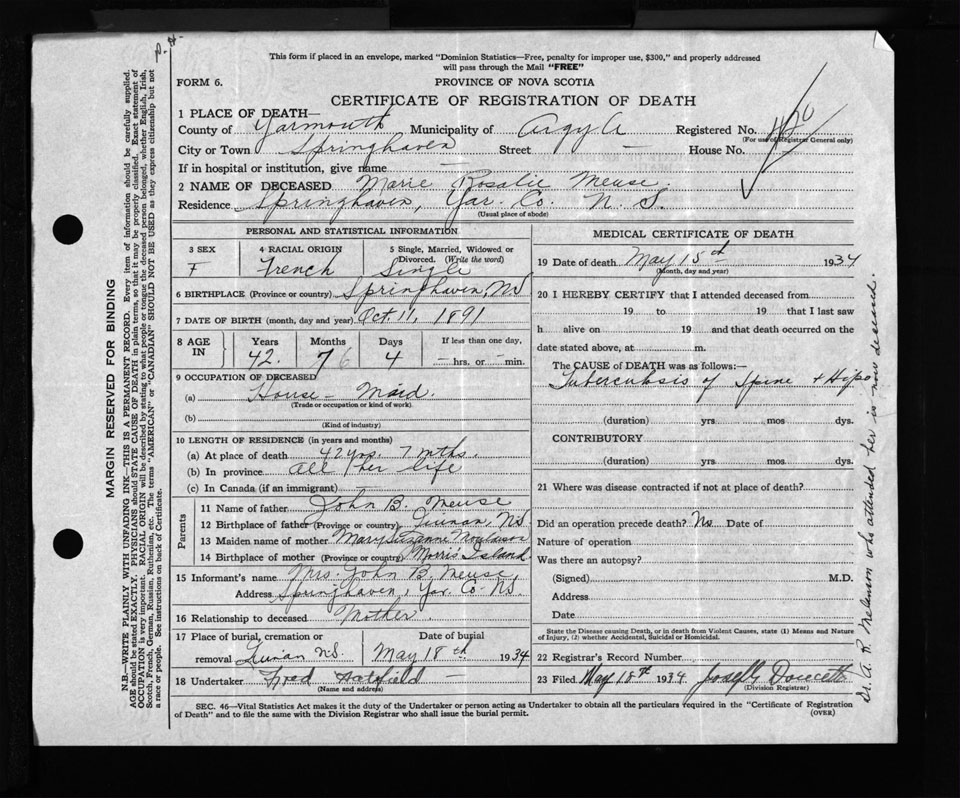 This form if placed in an envelope, marked "Dominion Statistics—Free, penalty for improper use, $300," and properly addressed
will pass through the Mail "FREE"
FORM 6.
PROVINCE OF NOVA SCOTIA
CERTIFICATE OF REGISTRATION OF DEATH
1 PLACE OF DEATH—
County of Yarmouth Municipality of Argyle Registered No.
(For use of Registrar General only)
City or Town Springhaven Street — House No.
If in hospital or institution, give name —
2 NAME OF DECEASED Marie Rosalie Meuse
Residence Springhaven, Yar. Co. N. S.
(Usual place of abode)
PERSONAL AND STATISTICAL INFORMATION
3 SEX 4 RACIAL ORIGIN 5 Single, Married, Widowed or Divorced. (Write the word)
F French Single
6 BIRTHPLACE (Province or country) Springhaven, NS
7 DATE OF BIRTH (month, day and year) Oct. 11, 1891
8 AGE IN Years Months Days If less than one day,
42. 7 6 4 — hrs. or — min.
9 OCCUPATION OF DECEASED
(a) House - Maid.
(Trade or occupation or kind of work)
(b)
(Kind of industry)
10 LENGTH OF RESIDENCE (in years and months)
(a) At place of death 42 yrs. 7 mths.
(b) In province all her life
(c) In Canada (if an immigrant)
Parents
11 Name of father John B. Meuse
12 Birthplace of father (Province or country) NS
13 Maiden name of mother Mary Suzanne
14 Birthplace of mother (Province or country) Morris Island
15 Informant's name Mrs. John B. Meuse,
Address Springhaven, Yar. Co. NS
16 Relationship to deceased Mother
17 Place of burial, cremation or removal N.S. Date of burial May 18th 1934
18 Undertaker Fred Hatfield —
(Name and address)
MEDICAL CERTIFICATE OF DEATH
19 Date of death May 15th 1934
(Month, day and year)
20 I HEREBY CERTIFY that I attended deceased from
19 to 19 that I last saw
h alive on 19 and that death occurred on the
date stated above, at m.
The CAUSE of DEATH was as follows:—
Tuberculosis of Spine + Hips
(duration) yrs. mos dys.
CONTRIBUTORY
(duration) yrs. mos. dys.
21 Where was disease contracted if not at place of death?
Did an operation precede death? No Date of
Nature of operation
Was there an autopsy?
(Signed) M.D.
Address
Date
State the Disease causing Death, or in death from Violent Causes, state (1) Means and Nature of Injury, (2) whether Accidental, Suicidal or Homicidal.
22 Registrar's Record Number
23 Filed May 18th 1934 Joseph G Doucette
(Division Registrar)
SEC. 46—Vital Statistics Act makes it the duty of the Undertaker or person acting as Undertaker to obtain all the particulars required in the "Certificate of Registration
of Death" and to file the same with the Division Registrar who shall issue the burial permit.
(OVER)
MARGIN RESERVED FOR BINDING
N.B.—WRITE PLAINLY WITH UNFADING INK—THIS IS A PERMANENT RECORD. Every item of information should be carefully supplied.
AGE should be stated EXACTLY. PHYSICIANS should STATE CAUSE OF DEATH in plain terms, so that it may be properly classified. Exact statement of
OCCUPATION is very important. RACIAL ORIGIN will be described by stating to what people or tongue the deceased person belonged, whether English, Irish,
Scotch, French, German, Russian, Ruthenian, etc. The terms "AMERICAN" or "CANADIAN" SHOULD NOT BE USED as they express citizenship but not
a race or people. See instructions on back of Certificate.
Dr. A. R. Melanson who attended her is now deceased.